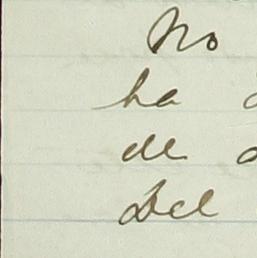 No
ha
de
Del